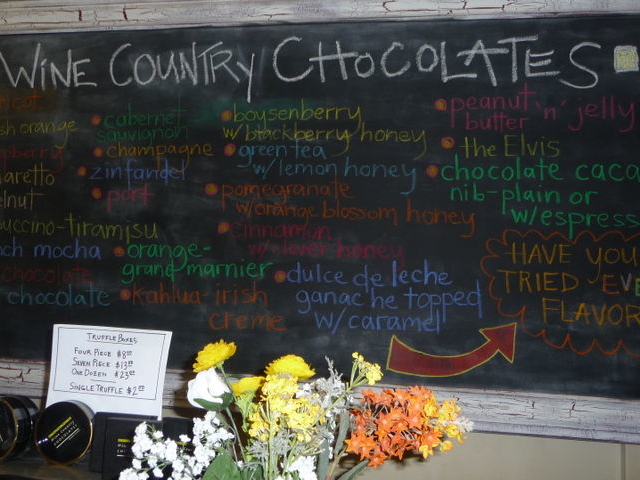 WINE COUNTRY CHOCOLATES
orange
cabernet
sauvignon
champagne
zinfandel
port
tiramisu
mocha
chocolate
chocolate
orange-
grand marnier
kahlua-irish
creme
boysenberry
w/blackberry honey
green tea
w/lemon honey
pomegranate
w/orange blossom honey
cinnamon
w/clover honey
dulce de leche
ganache topped
w/caramel
peanut 'n' jelly
butter
the Elvis
chocolate caca
nib-plain or
w/espress
HAVE YOU
TRIED EVE
FLAVOR
TRUFFLE BOXES
FOUR PIECE $8.00
SEVEN PIECE $13.00
ONE DOZEN $23.00
SINGLE TRUFFLE $2.00